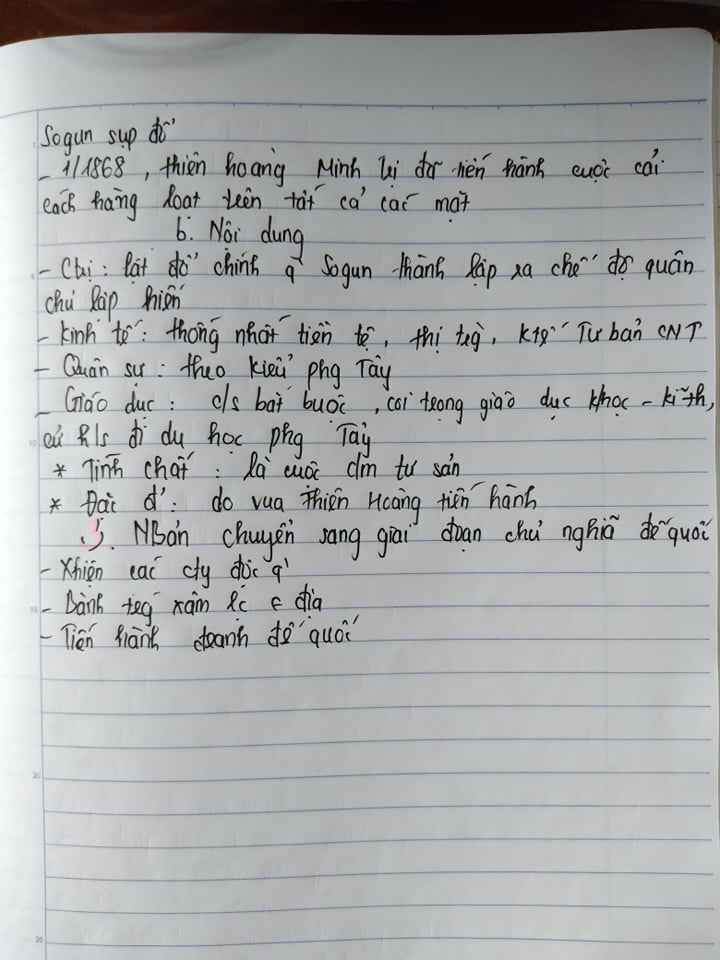 Sogun sụp đổ
- 1/1868, thiên hoàng Minh Trị đã tiến hành cuộc cải
cách hàng loạt trên tất cả các mặt
b. Nội dung
- Ctrị: lật đổ chính q' Sogun thành lập ra chế độ quân
chủ lập hiến
- Kinh tế: thống nhất tiền tệ, thị trg, Ktế Tư bản CNT
- Quân sự: theo kiểu phg Tây
- Giáo dục: c/s bắt buộc, coi trọng giáo dục khọc - kĩth,
cử h/s đi du học phg Tây
* Tính chất: là cuộc cm tư sản
* Đặc đ': do vua Thiên Hoàng tiến hành
3. NBản chuyển sang giai đoạn chủ nghĩa đế quốc
- Xhiện các cty độc q'
- Bành trg xâm lc địa
- Tiến hành đế quốc